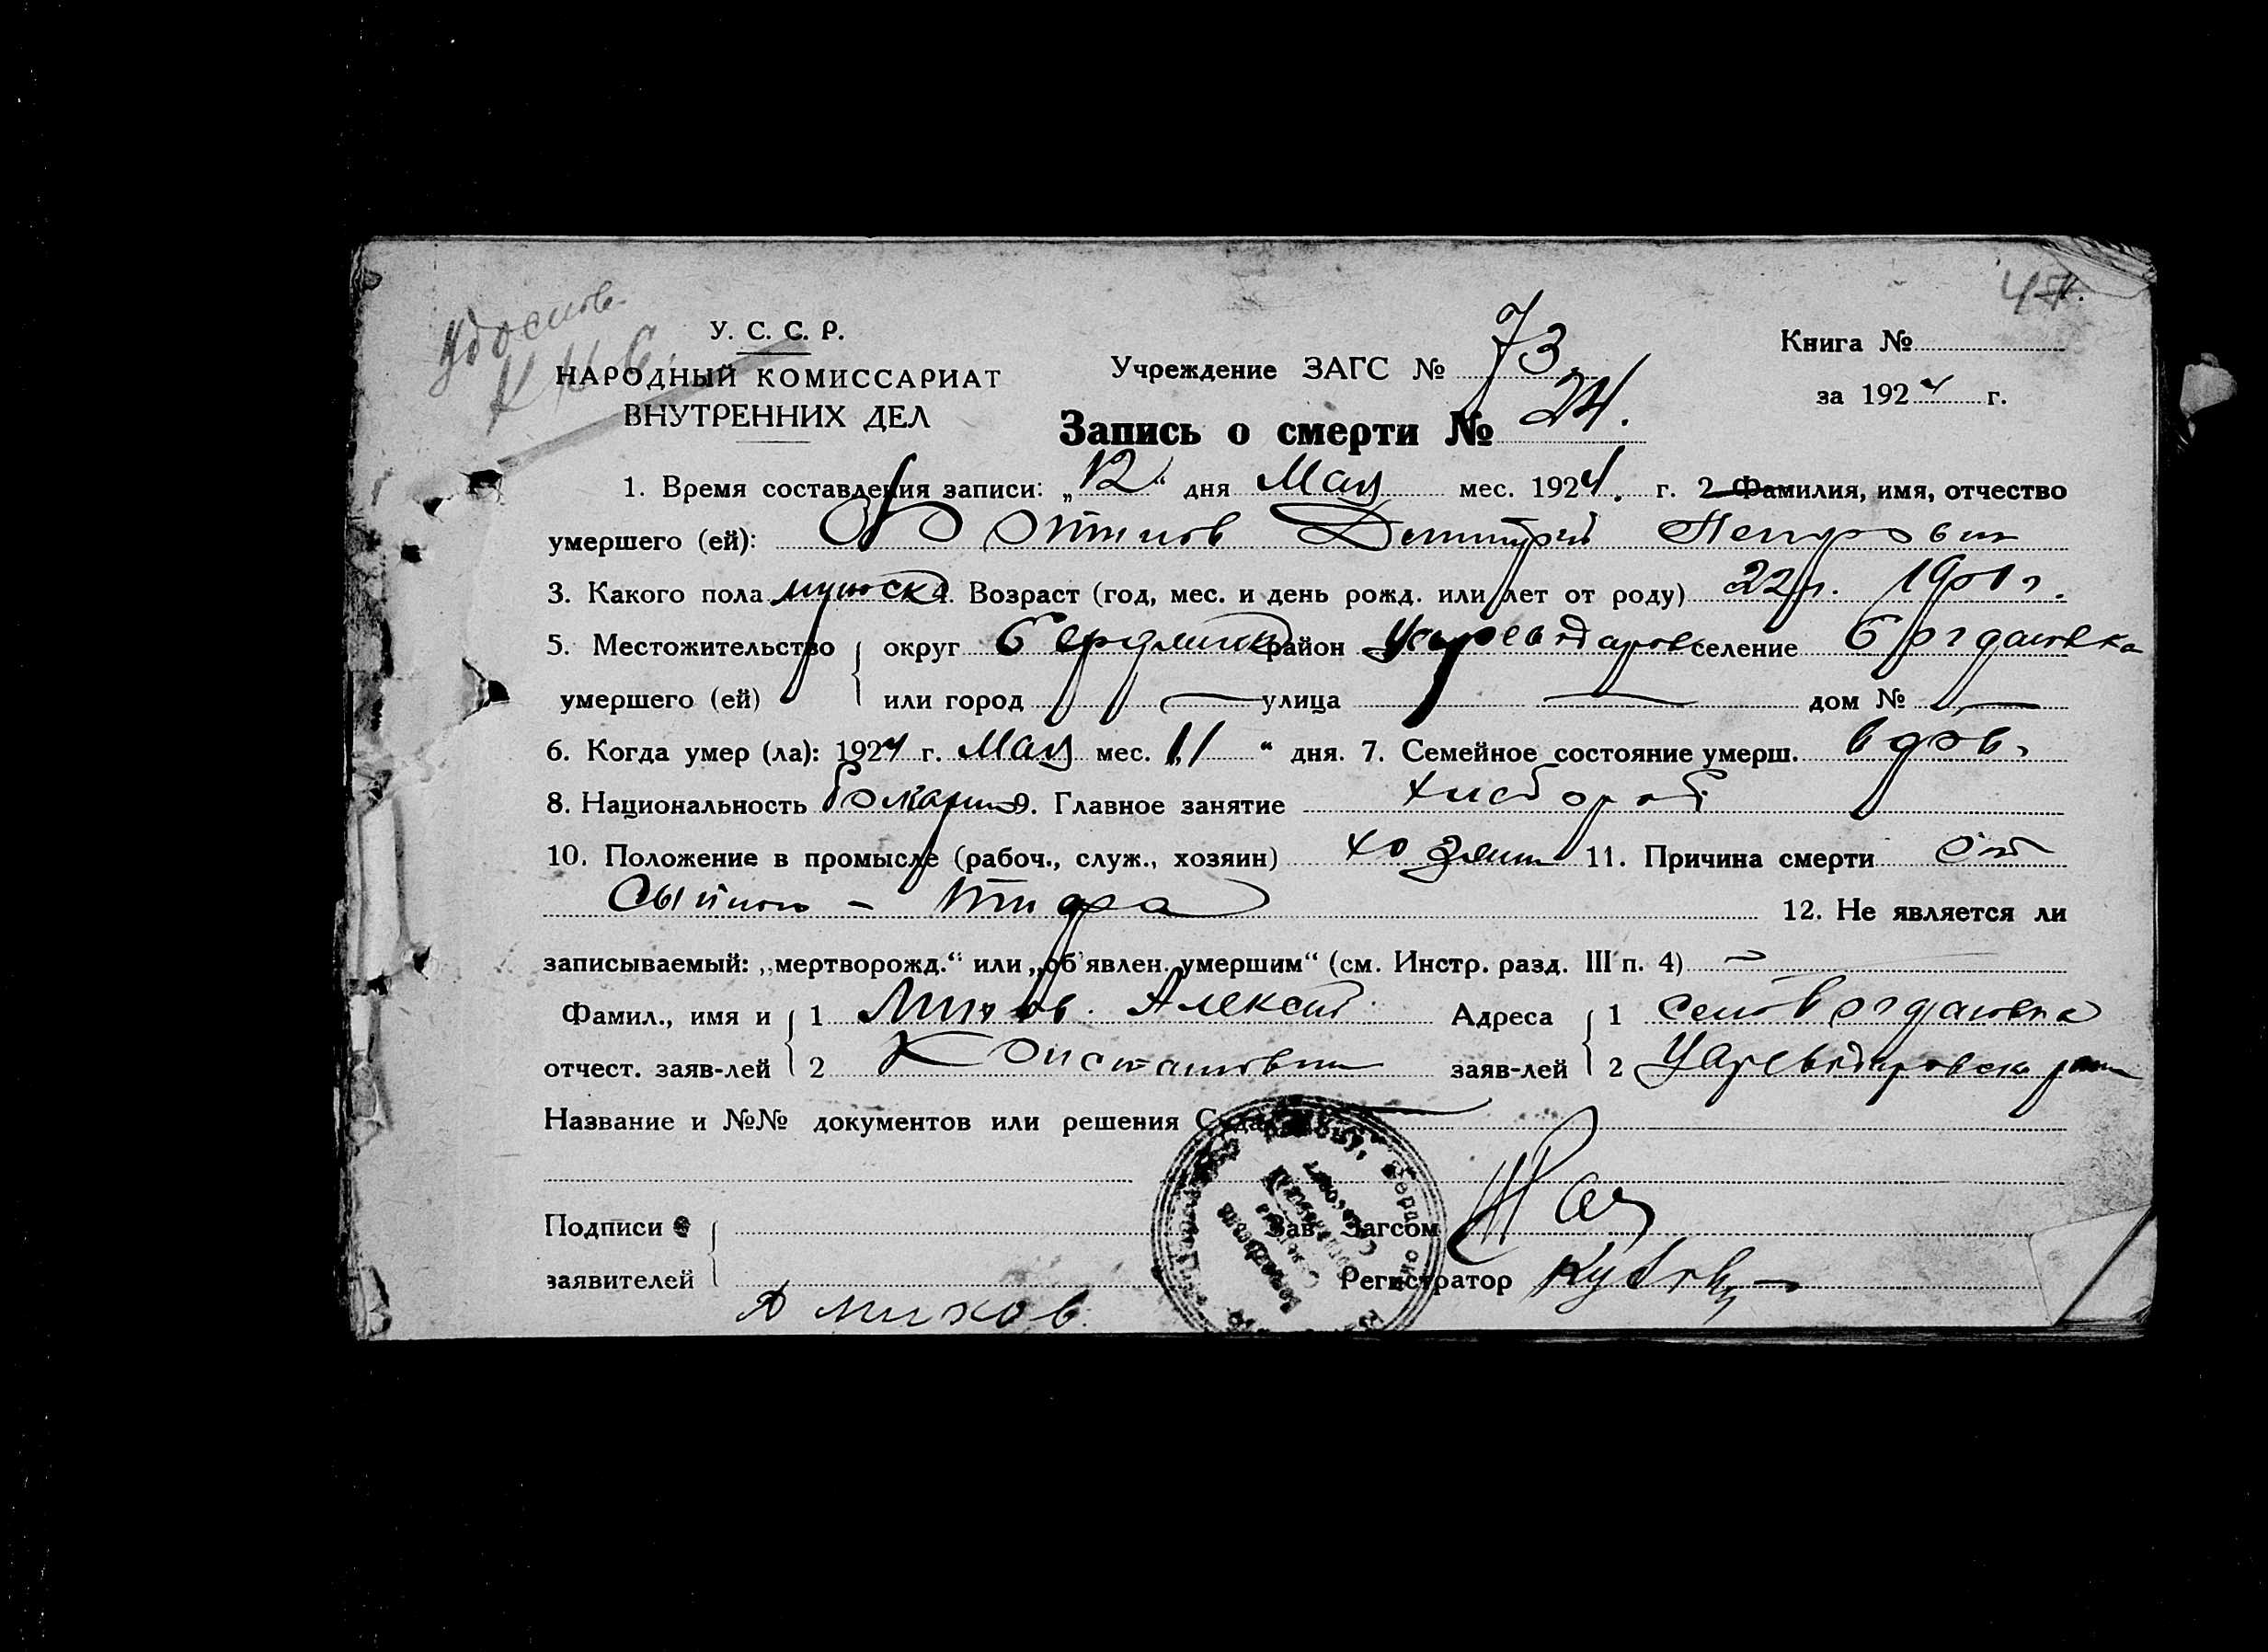 У. С. С. Р.
НАРОДНЫЙ КОМИССАРИАТ
ВНУТРЕННИХ ДЕЛ
Учреждение ЗАГС № 73
Книга №
за 1924 г.
Запись о смерти № 24.
1. Время составления записи: „12“ дня Мая мес. 1924. г. 2. Фамилия, имя, отчество
умершего (ей): Дмитрий Петрович
3. Какого пола мужск 4. Возраст (год, мес. и день рожд. или лет от роду) 22 л. 1901 г.
5. Местожительство округ Бердянск район Цареводаровс селение Богдановка
умершего (ей) или город — улица — дом № —
6. Когда умер (ла): 1924 г. Мая мес. „11“ дня. 7. Семейное состояние умерш. вдов.
8. Национальность Болгарин 9. Главное занятие хлебороб
10. Положение в промысле (рабоч., служ., хозяин) хозяин 11. Причина смерти от
Сыпного - тифа
12. Не является ли
записываемый: „мертворожд.“ или „об'явлен. умершим“ (см. Инстр. разд. III п. 4) —
Фамил., имя и 1 Алексей Адреса 1 село Богдановка
отчест. заяв-лей 2 Константинович заяв-лей 2 Цареводаровск район
Название и №№ документов или решения Суда
Подписи Зав. Загсом
заявителей Регистратор